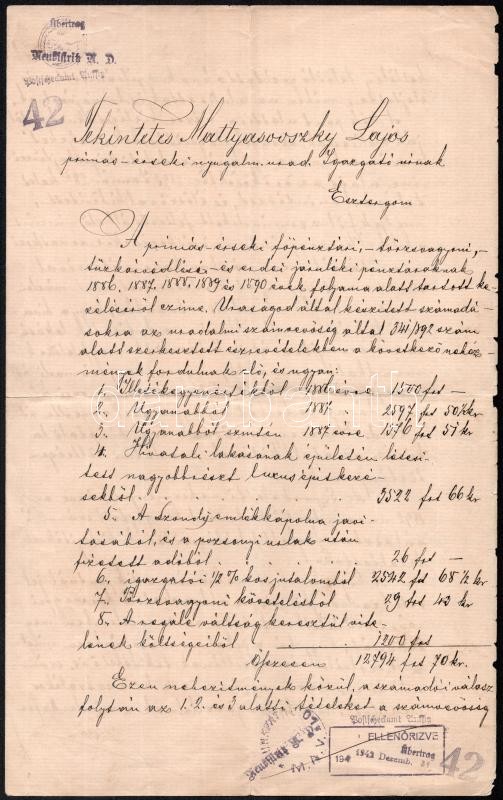 Übertrag
Neubistritz N. D.
Postscheckamt Aussig
42
Tekintetes Mattyasovszky Lajos
primás-érseki nyugalm. urad. Igazgató úrnak
Esztergom
A primás-érseki főpénztári, -törzsvagyoni,-
tűzkárvédlési- és erdei járuléki pénztáraknak
1886. 1887. 1888. 1889 és 1890 évek folyama alatt tartott ke-
zeléséről czimz. Uraságod által készitett számadá-
sokra az uradalmi számvevőség által 341/892 szám
alatt szerkesztett észrevételekben a következő nehez-
mények fordulnak elő, és ugyan:
1. Illetékegyenértéktől 1886 évre 1500 frt —
2. Ugyanabból 1887 " 2597 frt 50½ kr
3. Ugyanabból szintén 1887 évre 1576 frt 51 kr
4. Hivatali lakásának épületén létesi-
tett nagyobbrészt luxus épitkezé-
sekből . . . 3522 frt 66 kr
5. A Szondy emlékkápolna javi-
tásából, és a pozsonyi uslak után
fizetett adóból . . . 26 frt —
6. igazgatói ½ % kos jutalomból 2542 frt 68½ kr
7. Törzsvagyoni követelésből 29 frt 43 kr
8. A regale váltság keresztül vite-
lének költségeiből . . . 1200 frt
Öszvesen 12794 frt 70 kr.
Ezen nehezitmények közül, a számadói válasz
folytán az 1. 2. és 3 alatti tételeket a számvevőség
Postscheckamt Aussig
ELLENŐRIZVE
194
1942 Dezemb. 31
Übertrag
42
darabanth